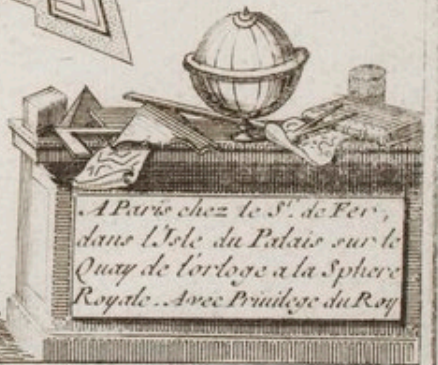 A Paris chez le S.r de Fer,
dans l'Isle du Palais sur le
Quay de l'orloge a la Sphere
Royale. Avec Priuilege du Roy